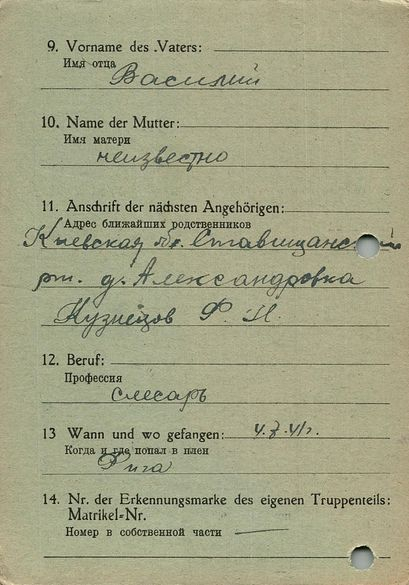 9. Vorname des Vaters:
Имя отца
Василий
10. Name der Mutter:
Имя матери
неизвестно
11. Anschrift der nächsten Angehörigen:
Адрес ближайших родственников
Киевская Ставищанский
д. Александровка
Кузнецов Ф. И.
12. Beruf:
Профессия
слесарь
13 Wann und wo gefangen: 4.7.41г.
Когда и где попал в плен
Рига
14. Nr. der Erkennungsmarke des eigenen Truppenteils:
Matrikel-Nr.
Номер в собственной части —